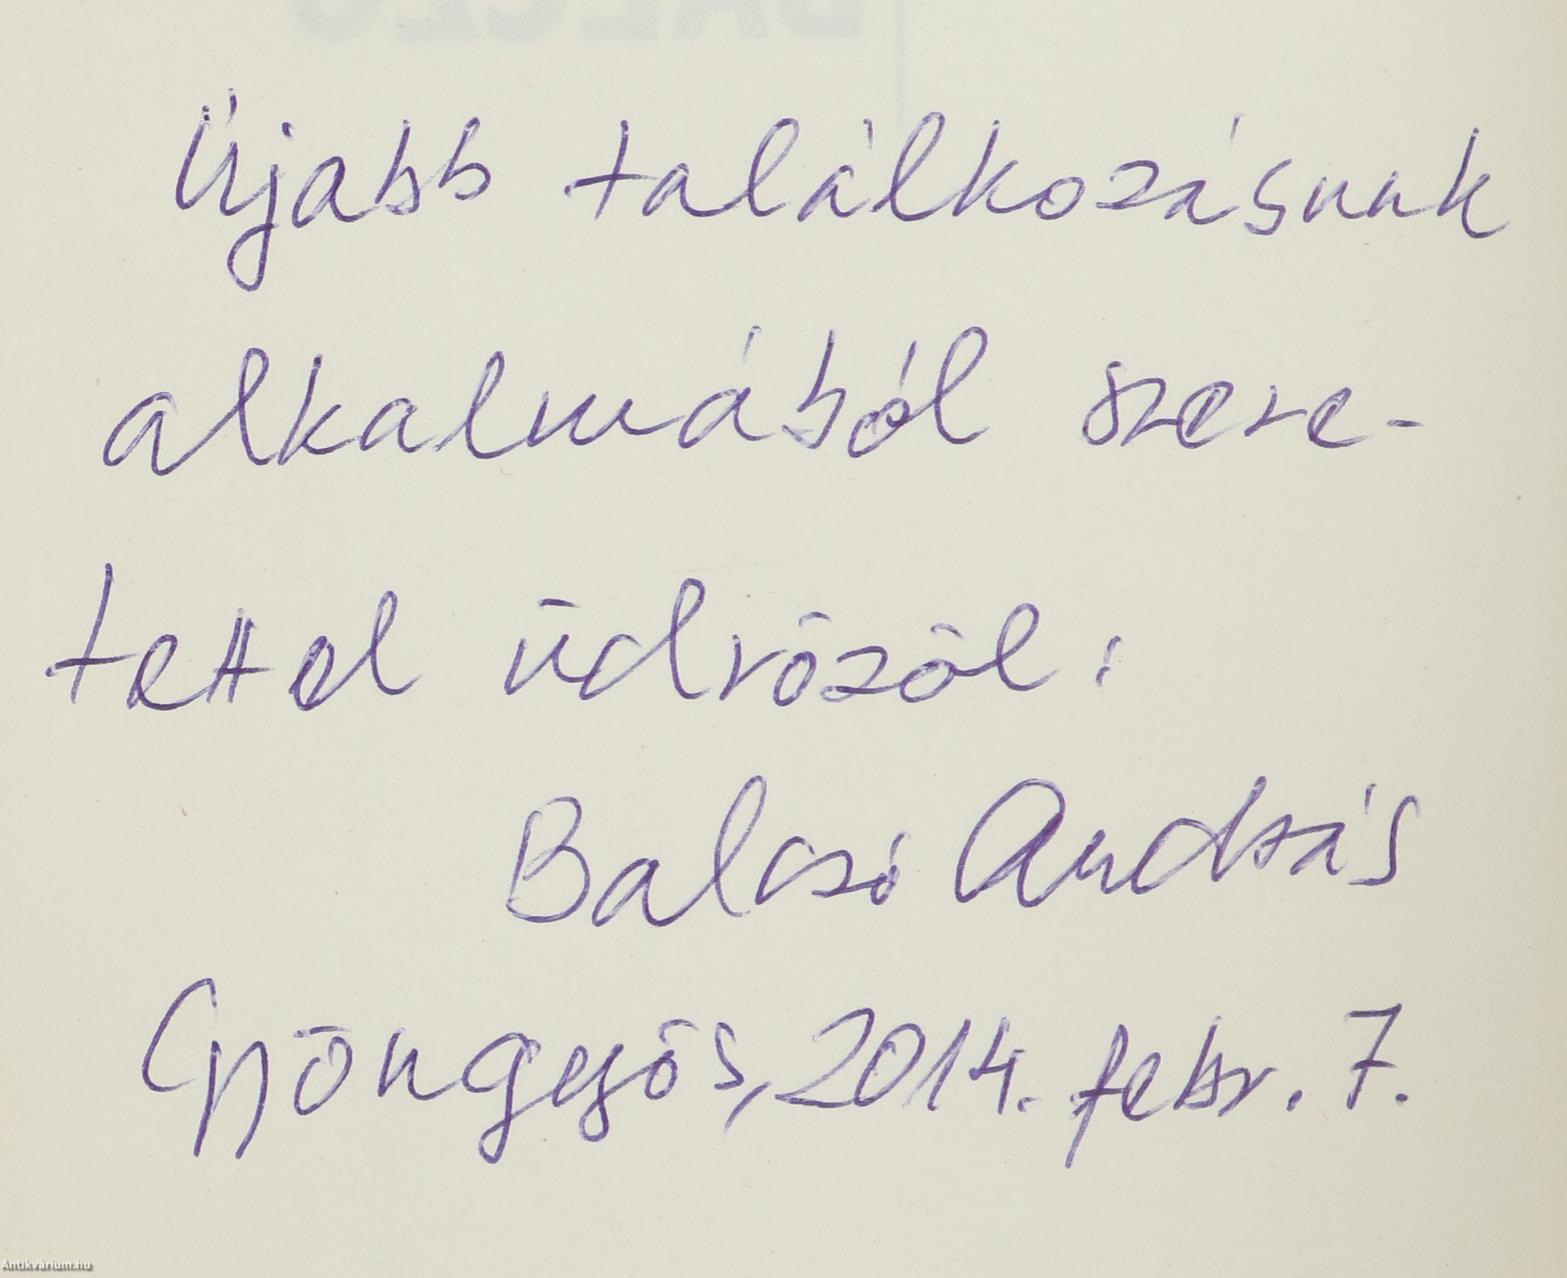 BALCZÓ
Újabb találkozásunk
alkalmából szere-
tettel üdvözöl:
Balczó András
Gyöngyös, 2014. febr. 7.
Antikvárium.hu